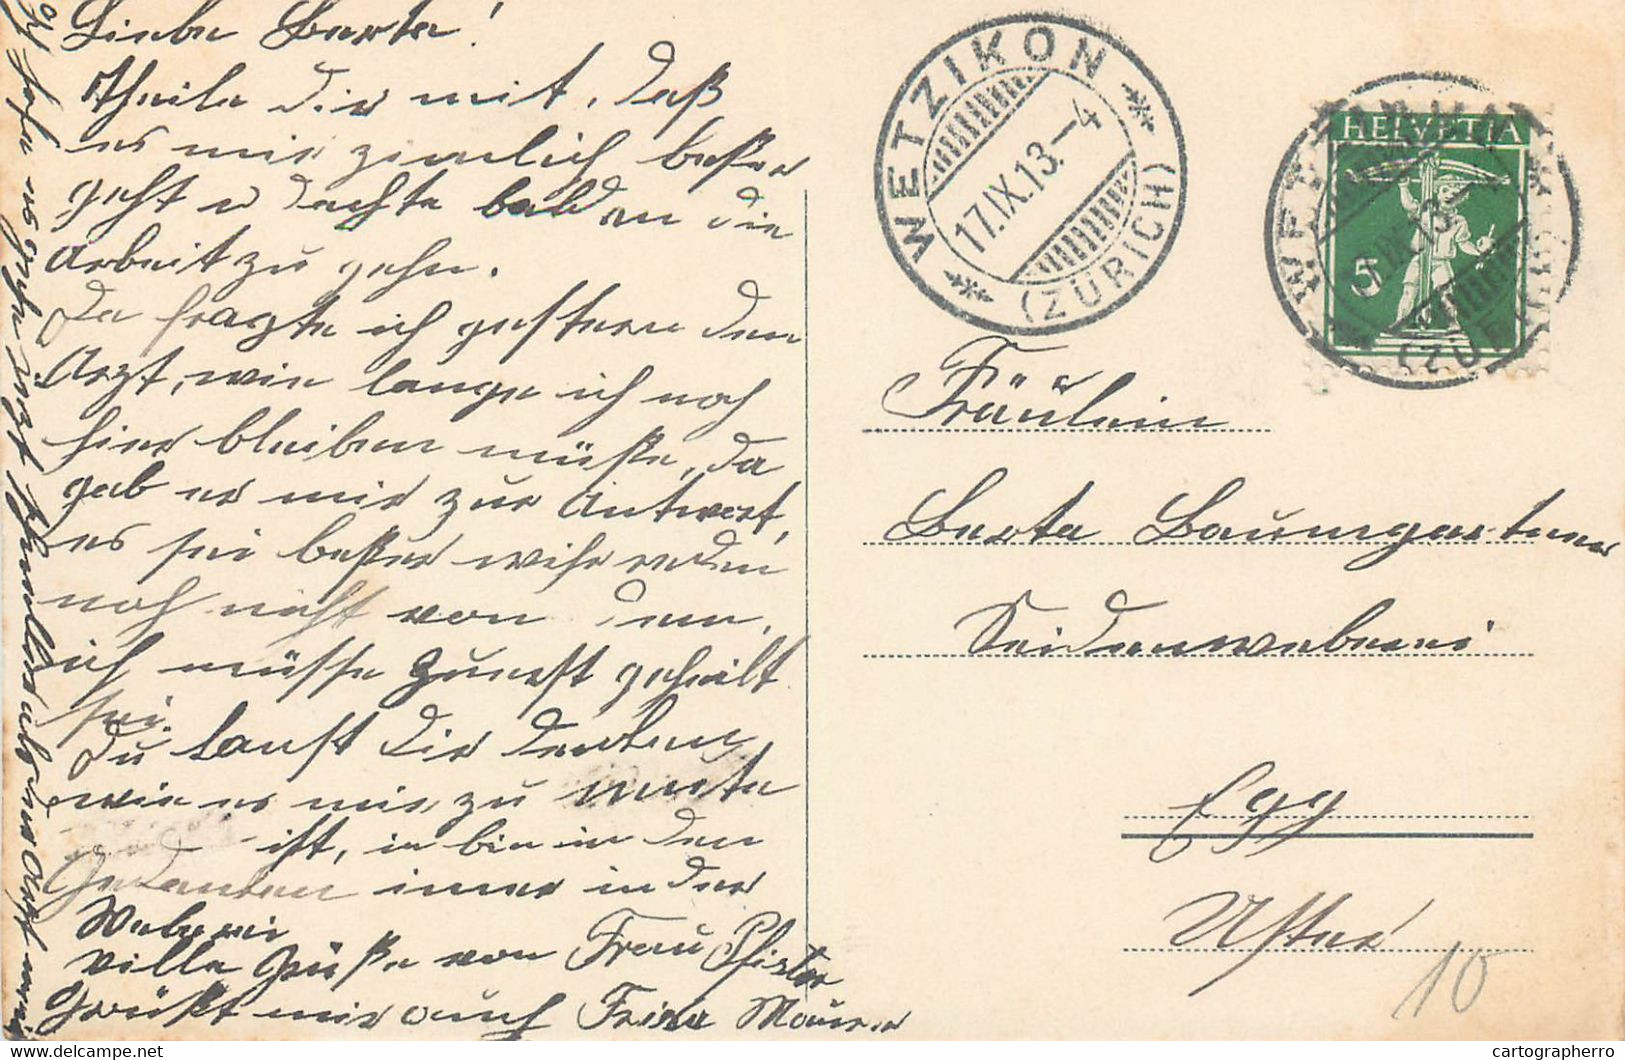 Liebe Berta!
Theile Dir mit, daß
es mir zimlich beßer
geht u dachte bald an die
Arbeit zu gehn.
Da fragte ich gestern den
Arzt, wie lange ich noch
hier bleiben müße, da
gab er mir zur Antwort,
es sei beßer wihr reden
noch nicht von dem,
ich müsse zuerst geheilt
sei.
Du kanst dir denken
wie es mir zu mute
ist, in bin in den
Gedanken imer in der
Weberei
Ville Grüße von Frau Pfister
Grüßt mir auch Frau Maurer
WETZIKON
17.IX.13.–4
(ZÜRICH)
HELVETIA
5
WETZIKON
(ZÜRICH)
Fräulein
Berta Baumgartner
Seidenweberei
Egg
Uster
10
www.delcampe.net
cartographerro